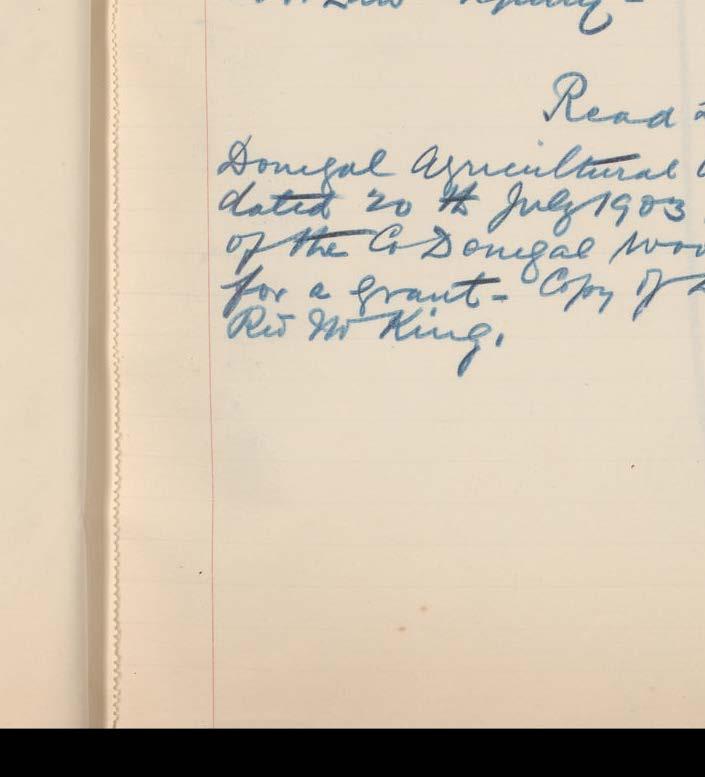 Read
Donegal Agricultural
dated 20th July 1903
of the Co Donegal
for a grant - Copy of
Rev Mr King.